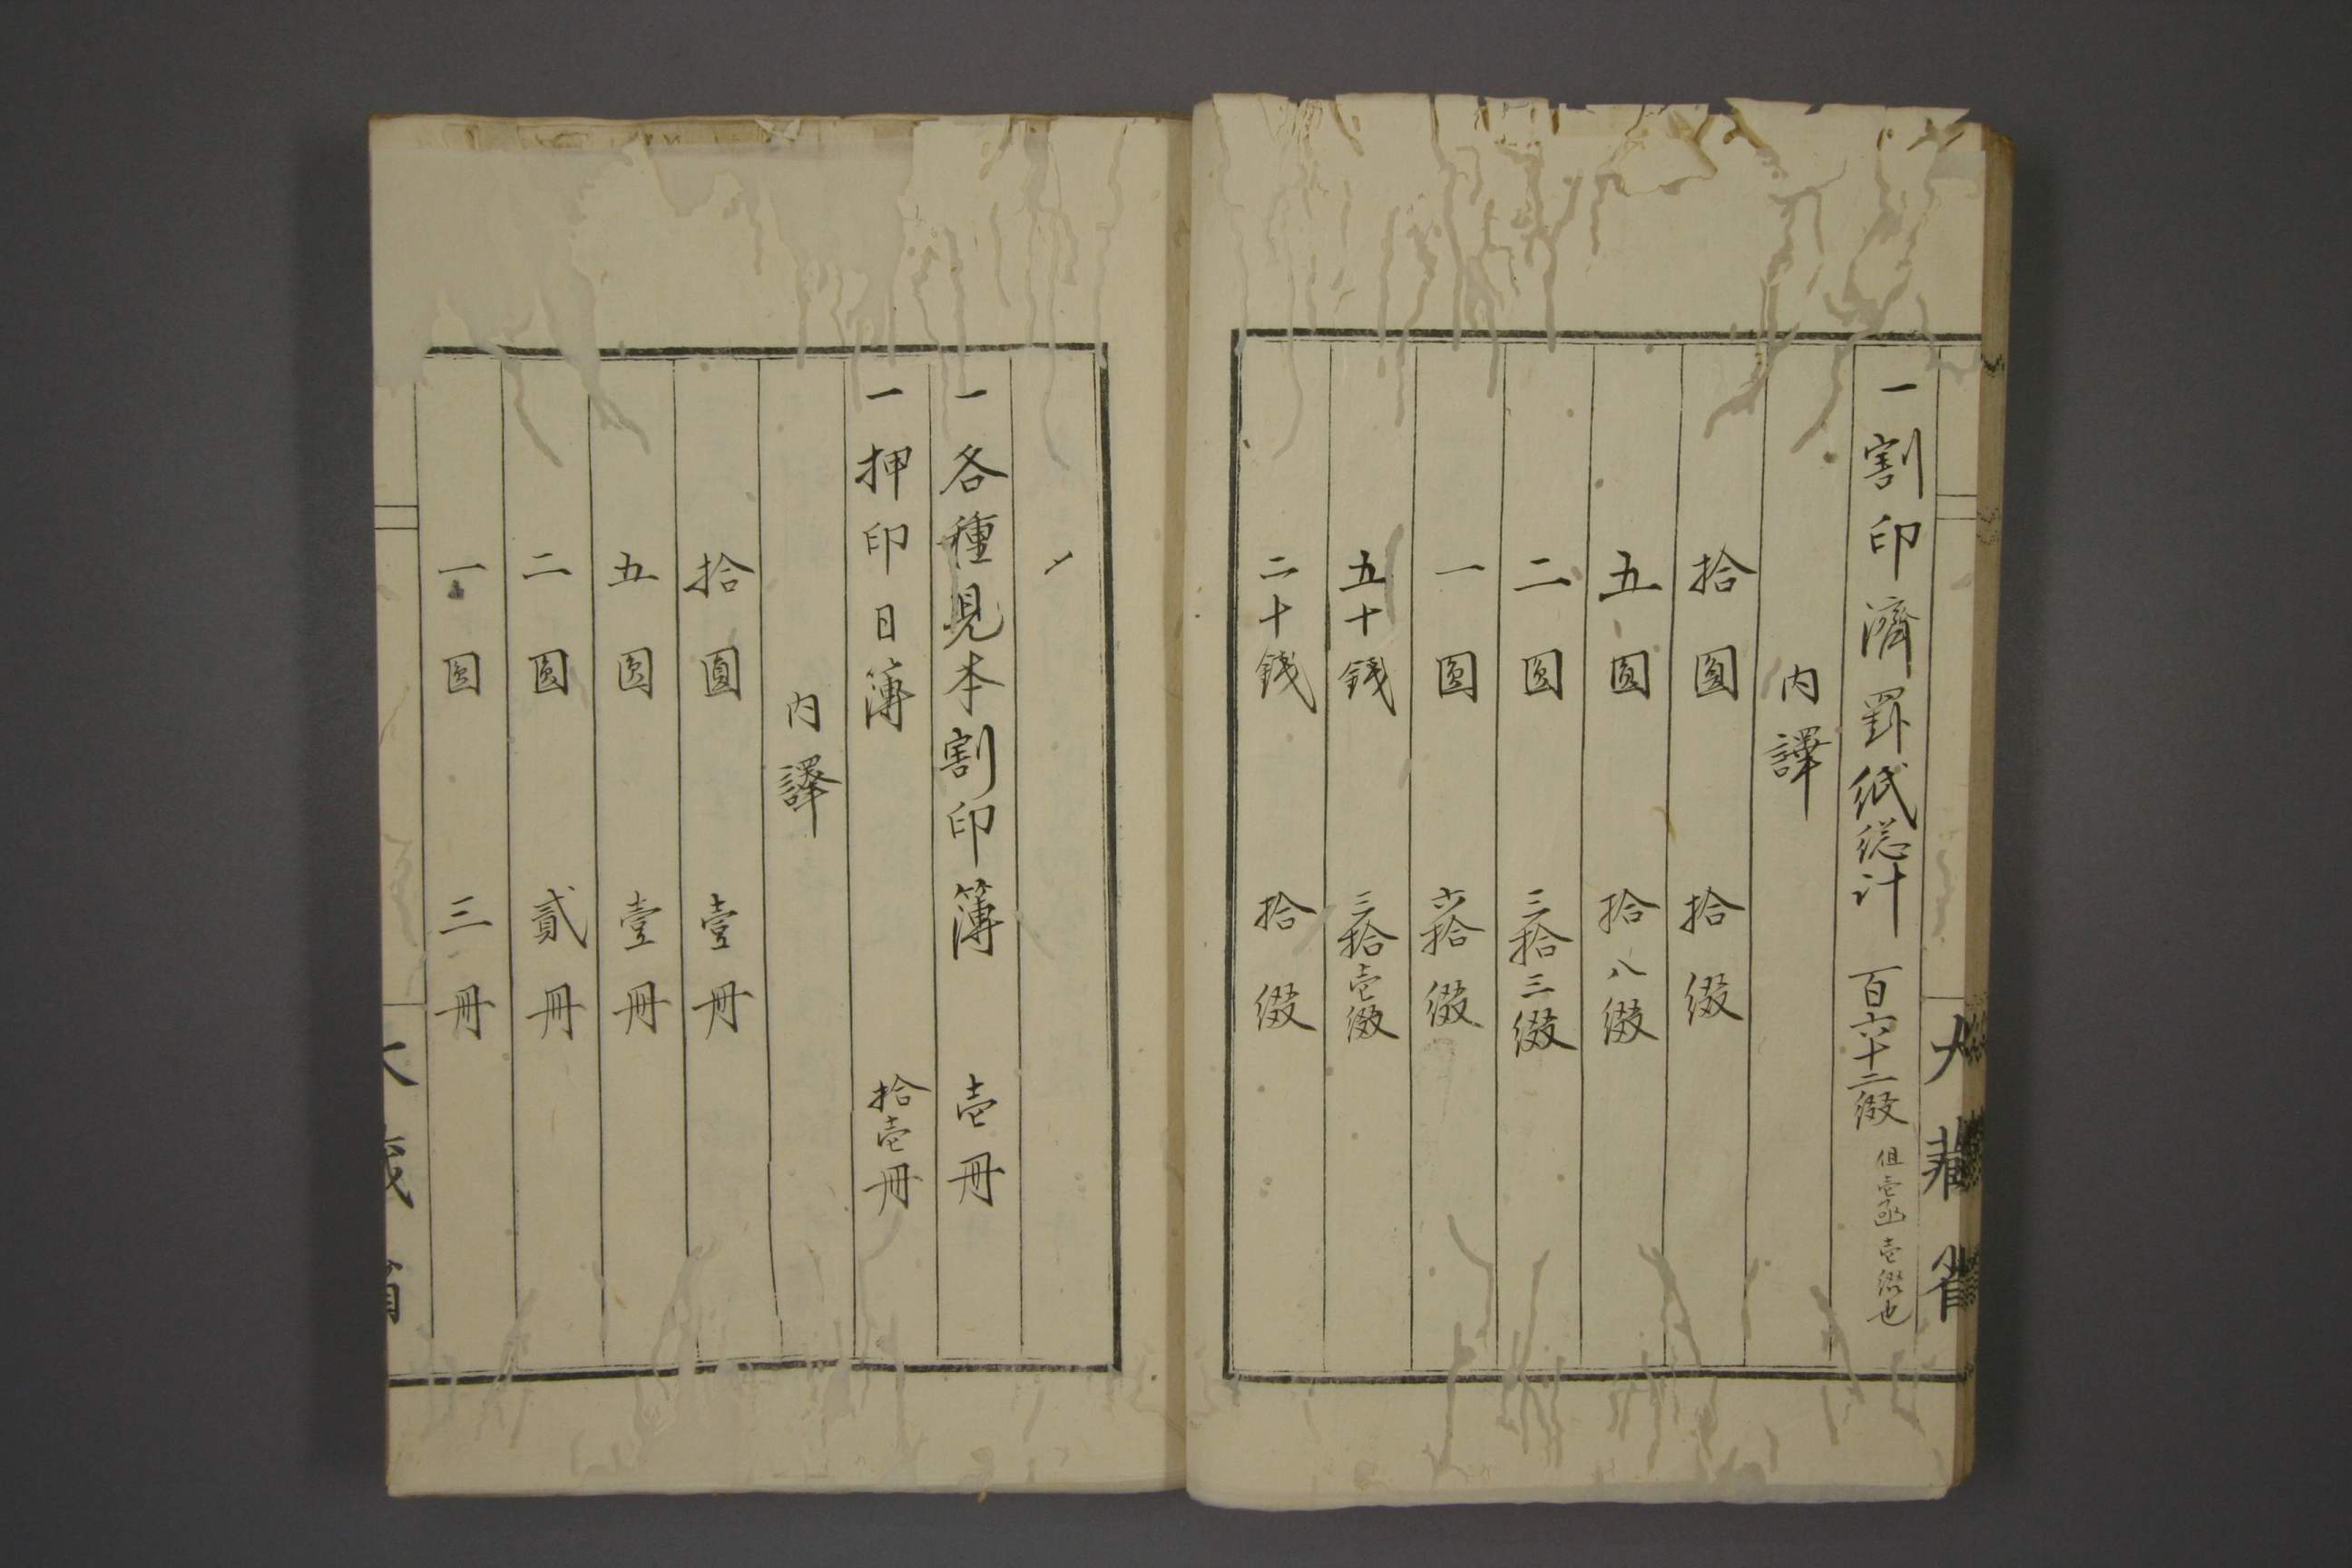 大藏省
一割印濟罫紙総計 百六十二綴 但壱凾壱綴也
内譯
拾圓 拾綴
五圓 拾八綴
二圓 三拾三綴
一圓 六拾綴
五十錢 三拾壱綴
二十錢 拾綴
一各種見本割印簿 壱冊
一押印日簿 拾壱冊
内譯
拾圓 壹冊
五圓 壹冊
二圓 貳冊
一圓 三冊
大藏省